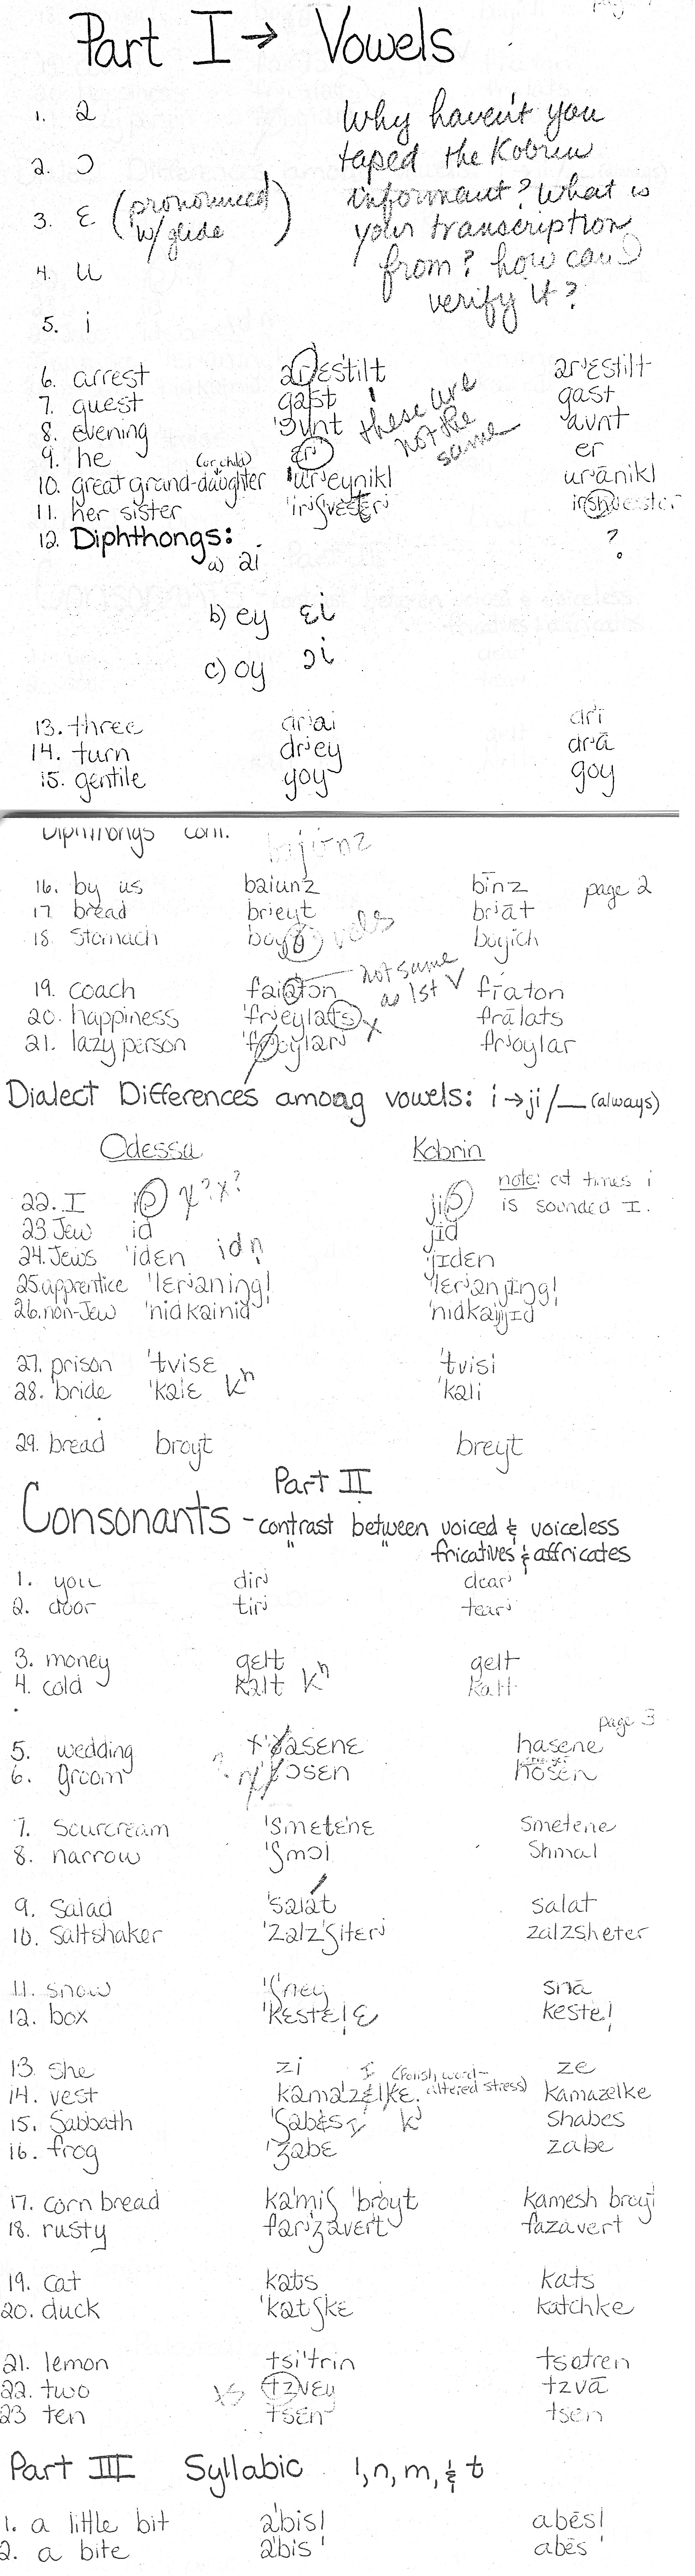 Part I → Vowels
1. a
2. ɔ
3. ɛ (pronounced w/glide)
4. u
5. i
Why haven't you
taped the Kobrin
informant? What is
your transcription
from? how can I
verify it?
6. arrest arʲɛstilt arɛstilt
7. guest gast gast
8. evening 'ɔvnt avnt
9. he er
10. great grand-daughter (or child) 'urʲeynikl urānikl
11. her sister
these are
not the
same
12. Diphthongs: ?
a) ai
b) ey ɛi
c) oy ɔi
13. three drʲai drī
14. turn drʲey drā
15. gentile goy goy
Diphthongs cont.
page 2
16. by us baiunz bīnz
17. bread brieyt briāt
18. stomach boyich
19. coach faiaton fīaton
not same
as 1st V
20. happiness 'frʲeylats frālats
21. lazy person frʲoylar
Dialect Differences among vowels: i→ji/__ (always)
Odessa Kobrin
note: at times i
is sounded I.
22. I
23. Jew id jid
24. Jews 'idɛn jɪdɛn
25. apprentice 'lerʲaning! 'lerʲanjing!
26. non-Jew 'nidkainid 'nidkaijɪd
27. prison 'tvisɛ 'tvisi
28. bride 'kalɛ kʰ 'kali
29. bread broyt breyt
Part II
Consonants - contrast between voiced & voiceless
" " fricatives & affricates
1. you dirʲ dearʲ
2. door tirʲ tearʲ
3. money gelt gelt
4. cold kalt kʰ kalt
page 3
5. wedding hasene
6. groom hosen
7. sourcream 'smetɛnɛ smetene
8. narrow 'ʃmɔl shmal
9. salad 'salat salat
10. saltshaker 'zalz'ʃiterʲ zalzsheter
11. snow 'ʃney snā
12. box 'kɛstɛlɛ kestel
13. she zi ze
14. vest kama'zɛlkɛ kamazelke
(Polish word-
altered stress)
15. Sabbath 'ʃabɛs shabes
16. frog 'zabɛ zabe
17. corn bread ka'miʃ 'broyt kamesh broyt
18. rusty farʲzavert fazavert
19. cat kats kats
20. duck 'katʃkɛ katchke
21. lemon tsi'trin tsetren
22. two tzvey tzvā
23 ten tsɛn tsen
Part III Syllabic l, n, m, & t
1. a little bit a'bisl abēsl
2. a bite a'bis abēs